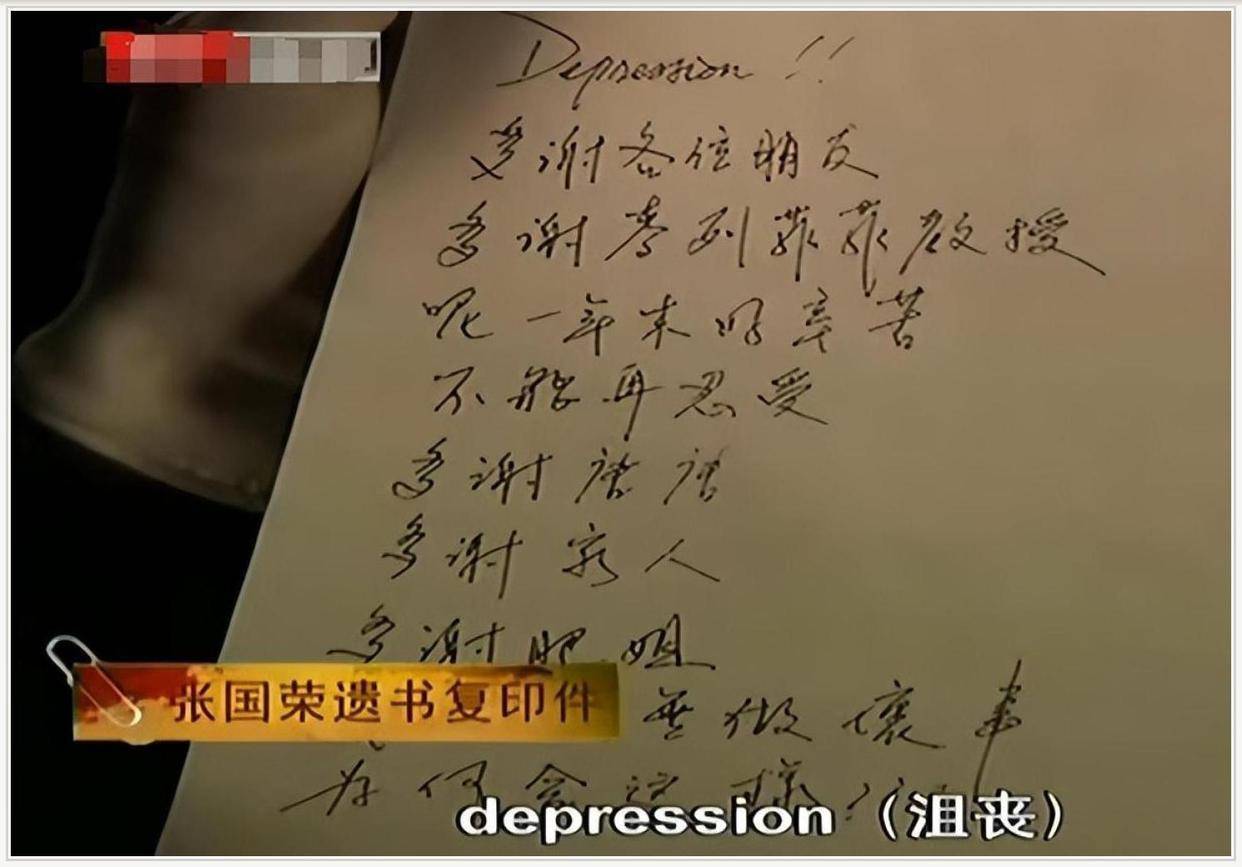 Depression !!
多谢各位朋友
多谢李列菲菲教授
呢一年来好辛苦
不能再忍受
多谢唐唐
多谢家人
多谢肥姐
张国荣遗书复印件
無做壞事
为何会这样?
depression（沮丧）